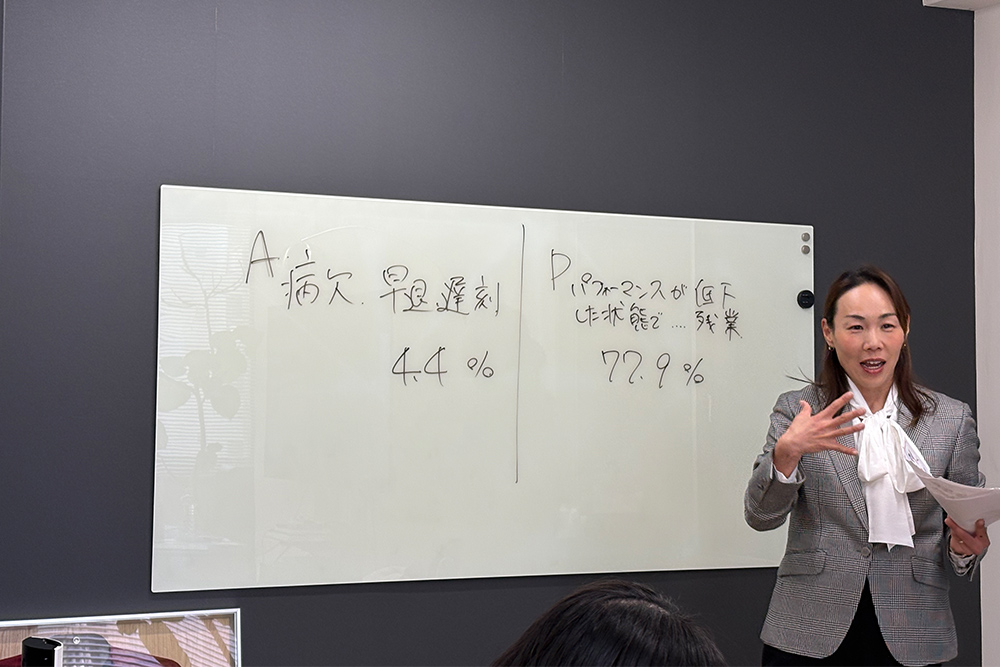 A. 病欠. 早退、遅刻
4.4%
P. パフォーマンスが低下
した状態で....残業.
77.9%